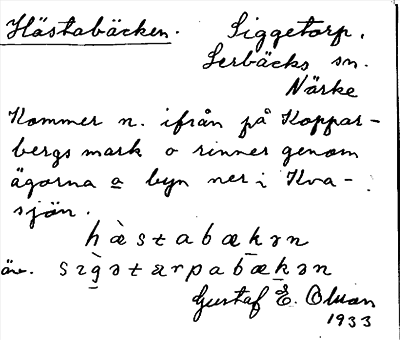 Hästabäcken. Siggetorp.
Lerbäcks sn.
Närke
Kommer n. ifrån på Koppar-
bergs mark o rinner genom
ägorna a byn ner i Kva-
sjön.
hæ̀stabækən
äv. sɪgətarpabækən
Gustaf E. Olsson
1933